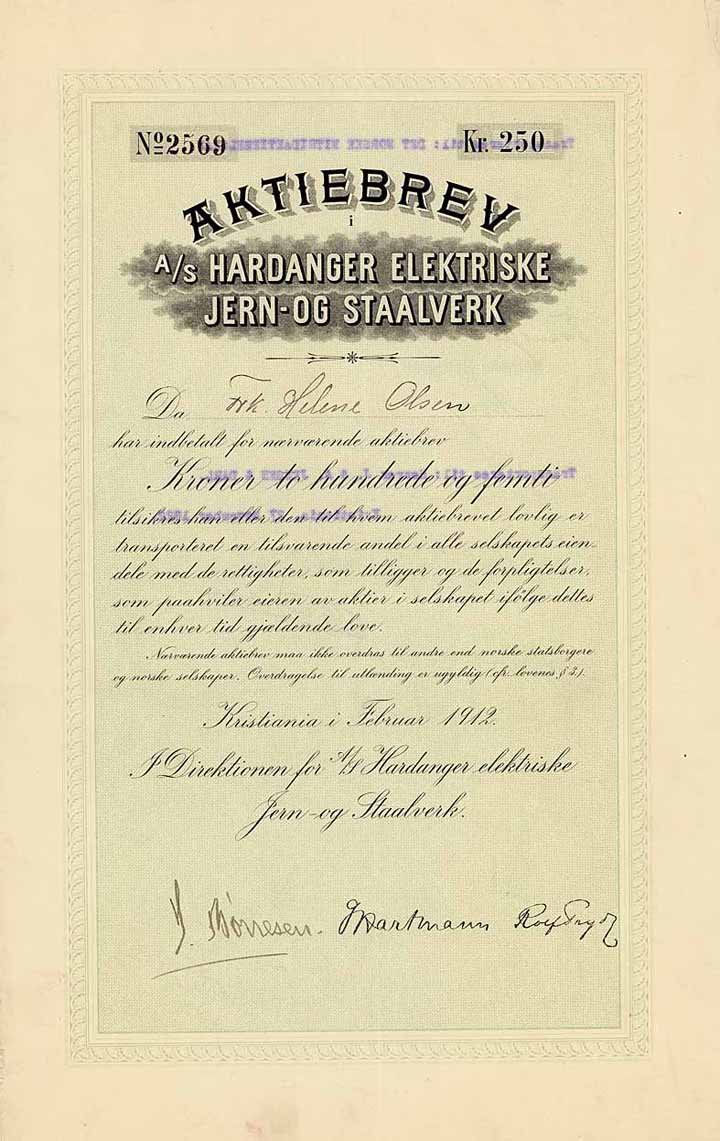 № 2569
Kr. 250
AKTIEBREV
i
A/S HARDANGER ELEKTRISKE
JERN-OG STAALVERK
Da Frk. Helene Olsen
har indbetalt for nærværende aktiebrev
Kroner to hundrede og femti
tilsikres han eller den til hvem aktiebrevet lovlig er
transporteret en tilsvarende andel i alle selskapets eien-
dele med de rettigheter, som tilligger og de forpligtelser,
som paahviler eieren av aktier i selskapet ifølge dettes
til enhver tid gjældende love.
Nærværende aktiebrev maa ikke overdras til andre end norske statsborgere
og norske selskaper. Overdragelse til utlænding er ugyldig (cfr. lovenes § 3).
Kristiania i Februar 1912.
I Direktionen for A/S Hardanger elektriske
Jern-og Staalverk.
Hartmann